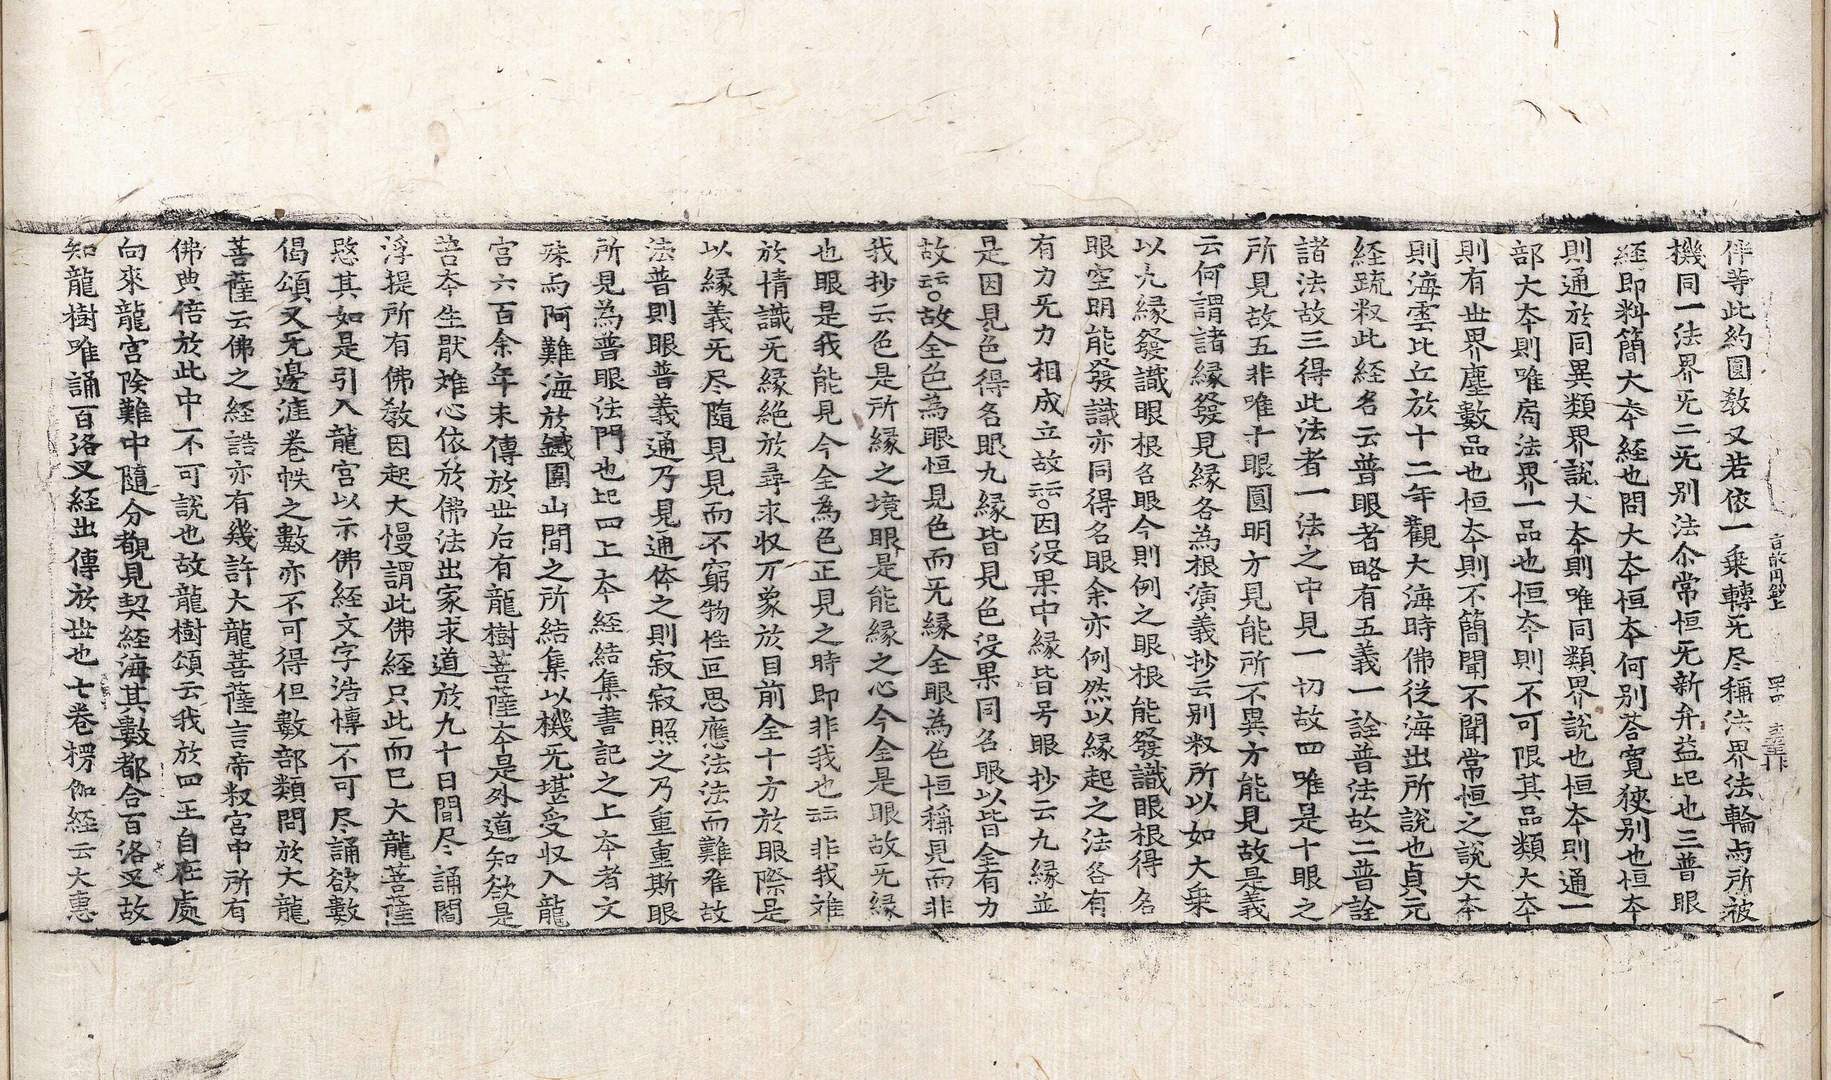 伴等此約圓敎又若依一乗轉旡尽稱法界法輪与所被
機同一法界旡二旡别法尒常恒旡新弁益巳也三普眼
経即料簡大夲経也問大夲恒夲何别荅寬狹别也恒夲
則通於同異類界說大夲則唯同類界說也恒夲則通一
部大夲則唯局法界一品也恒夲則不可限其品類大夲
則有世界塵數品也恒夲則不簡聞不聞常恒之說大夲
則海雲比丘放十二年觀大海時佛従海出所說也貞元
経䟽釈此経名云普眼者略有五義一詮普法故二普詮
諸法故三得此法者一法之中見一切故四唯是十眼之
所見故五非唯十眼圓明方見能所不異方能見故是義
云何謂諸縁發見縁各為根演義抄云别釈所以如大乗
以九縁發識眼根名眼今則例之眼根能發識眼根得名
眼空明能發識亦同得名眼余亦例然以縁起之法各有
有力旡力相成立故云云○因没果中縁皆号眼抄云九縁並
是因見色得名眼九縁皆見色没果同名眼以皆全有力
故云云○故全色為眼恒見色而旡縁全眼為色恒稱見而非
我抄云色是所縁之境眼是能縁之心今全是眼故旡縁
也眼是我能見今全為色正見之時即非我也云云非我𨿽
於情識旡縁絶於尋求収万象於目前全十方於眼際是
以縁義旡尽隨見見而不窮物性叵思應法法而難准故
法普則眼普義通乃見通体之則寂寂照之乃重重斯眼
所見為普眼法門也巳四上夲経結集書記之上夲者文
殊与阿難海於鐵圍山間之所結集以機旡堪受収入龍
宮六百余年末傳於世后有龍樹菩薩夲是外道知欲是
苦夲生猒𨿽心依於佛法出家求道於九十日間尽誦閻
浮提所有佛敎因起大慢謂此佛経只此而巳大龍菩薩
愍其如是引入龍宮以示佛経文字浩愽不可尽誦欲數
偈頌又旡邊漄卷帙之數亦不可得但數部類問於大龍
菩薩云佛之経誥亦有幾許大龍菩薩言帝釈宮中所有
佛典倍於此中不可說也故龍樹頌云我於四王自在處
向來龍宮険難中隨分覩見契経海其數都合百洛叉故
知龍樹唯誦百洛叉経出傳於世也七卷楞伽経云大惠